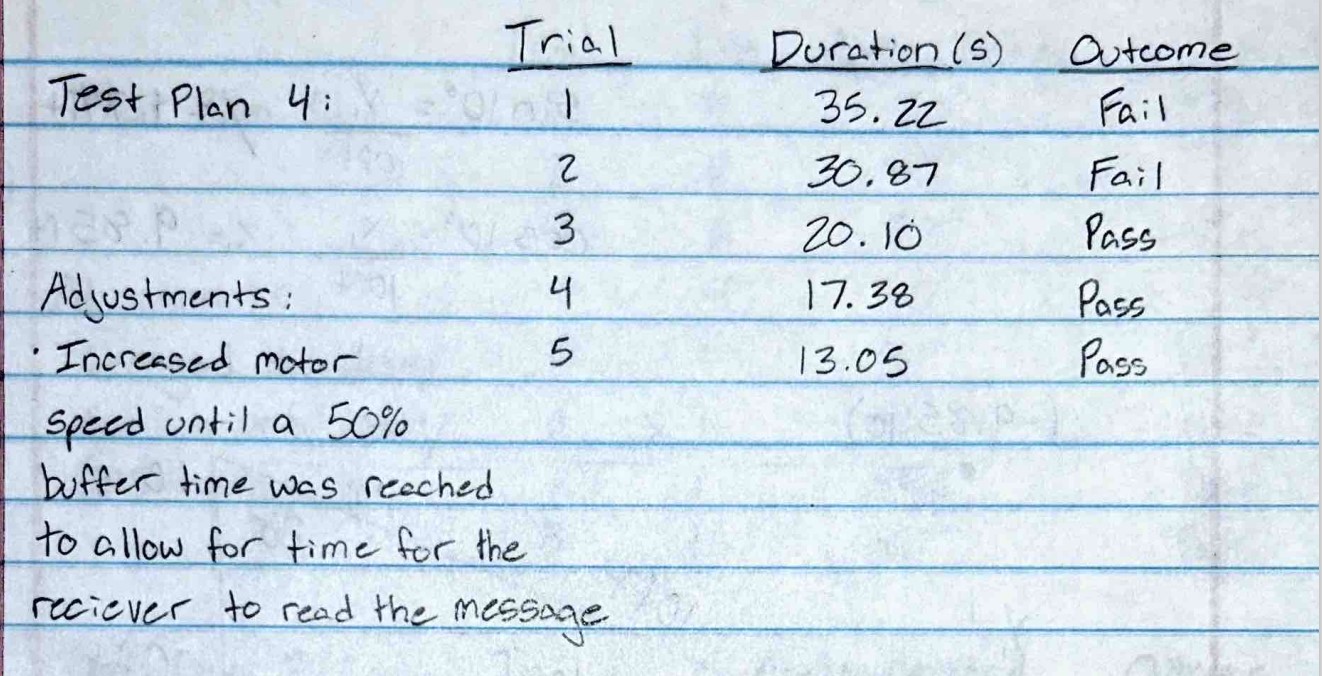 Trial Duration (s) Outcome
Test Plan 4: 1 35.22 Fail
2 30.87 Fail
3 20.10 Pass
Adjustments: 4 17.38 Pass
· Increased motor 5 13.05 Pass
speed until a 50%
buffer time was reached
to allow for time for the
reciever to read the message